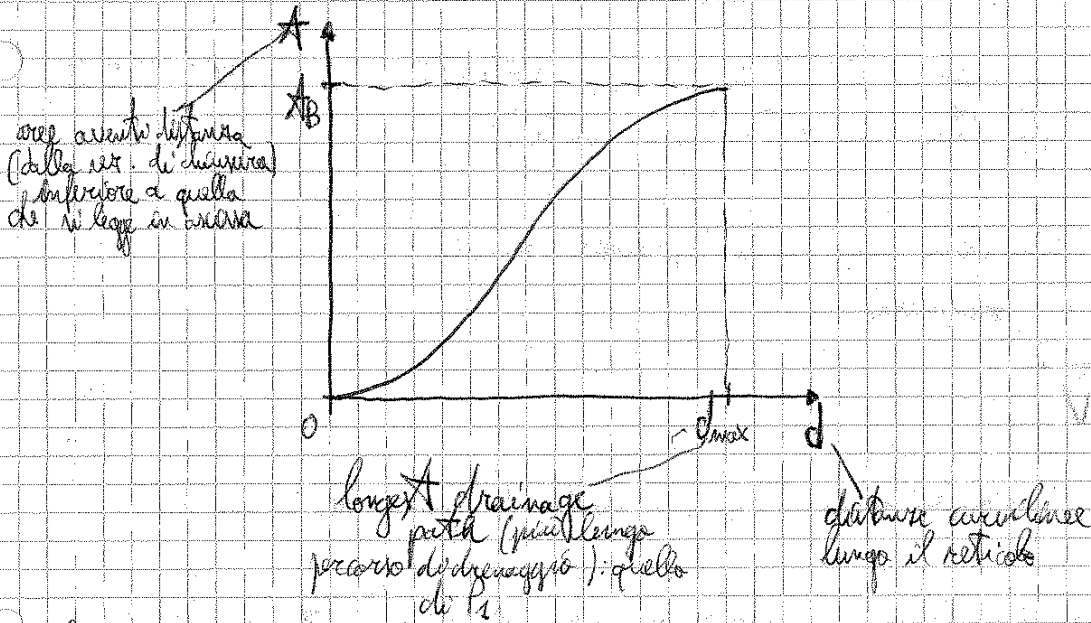 A
A_B
aree aventi distanza
(dalla sez. di chiusura)
inferiore a quella
che si legge in ascissa
O
dmax
d
longest drainage
path (più lungo
percorso di drenaggio): quello
di P1
distanze curvilinee
lungo il reticolo